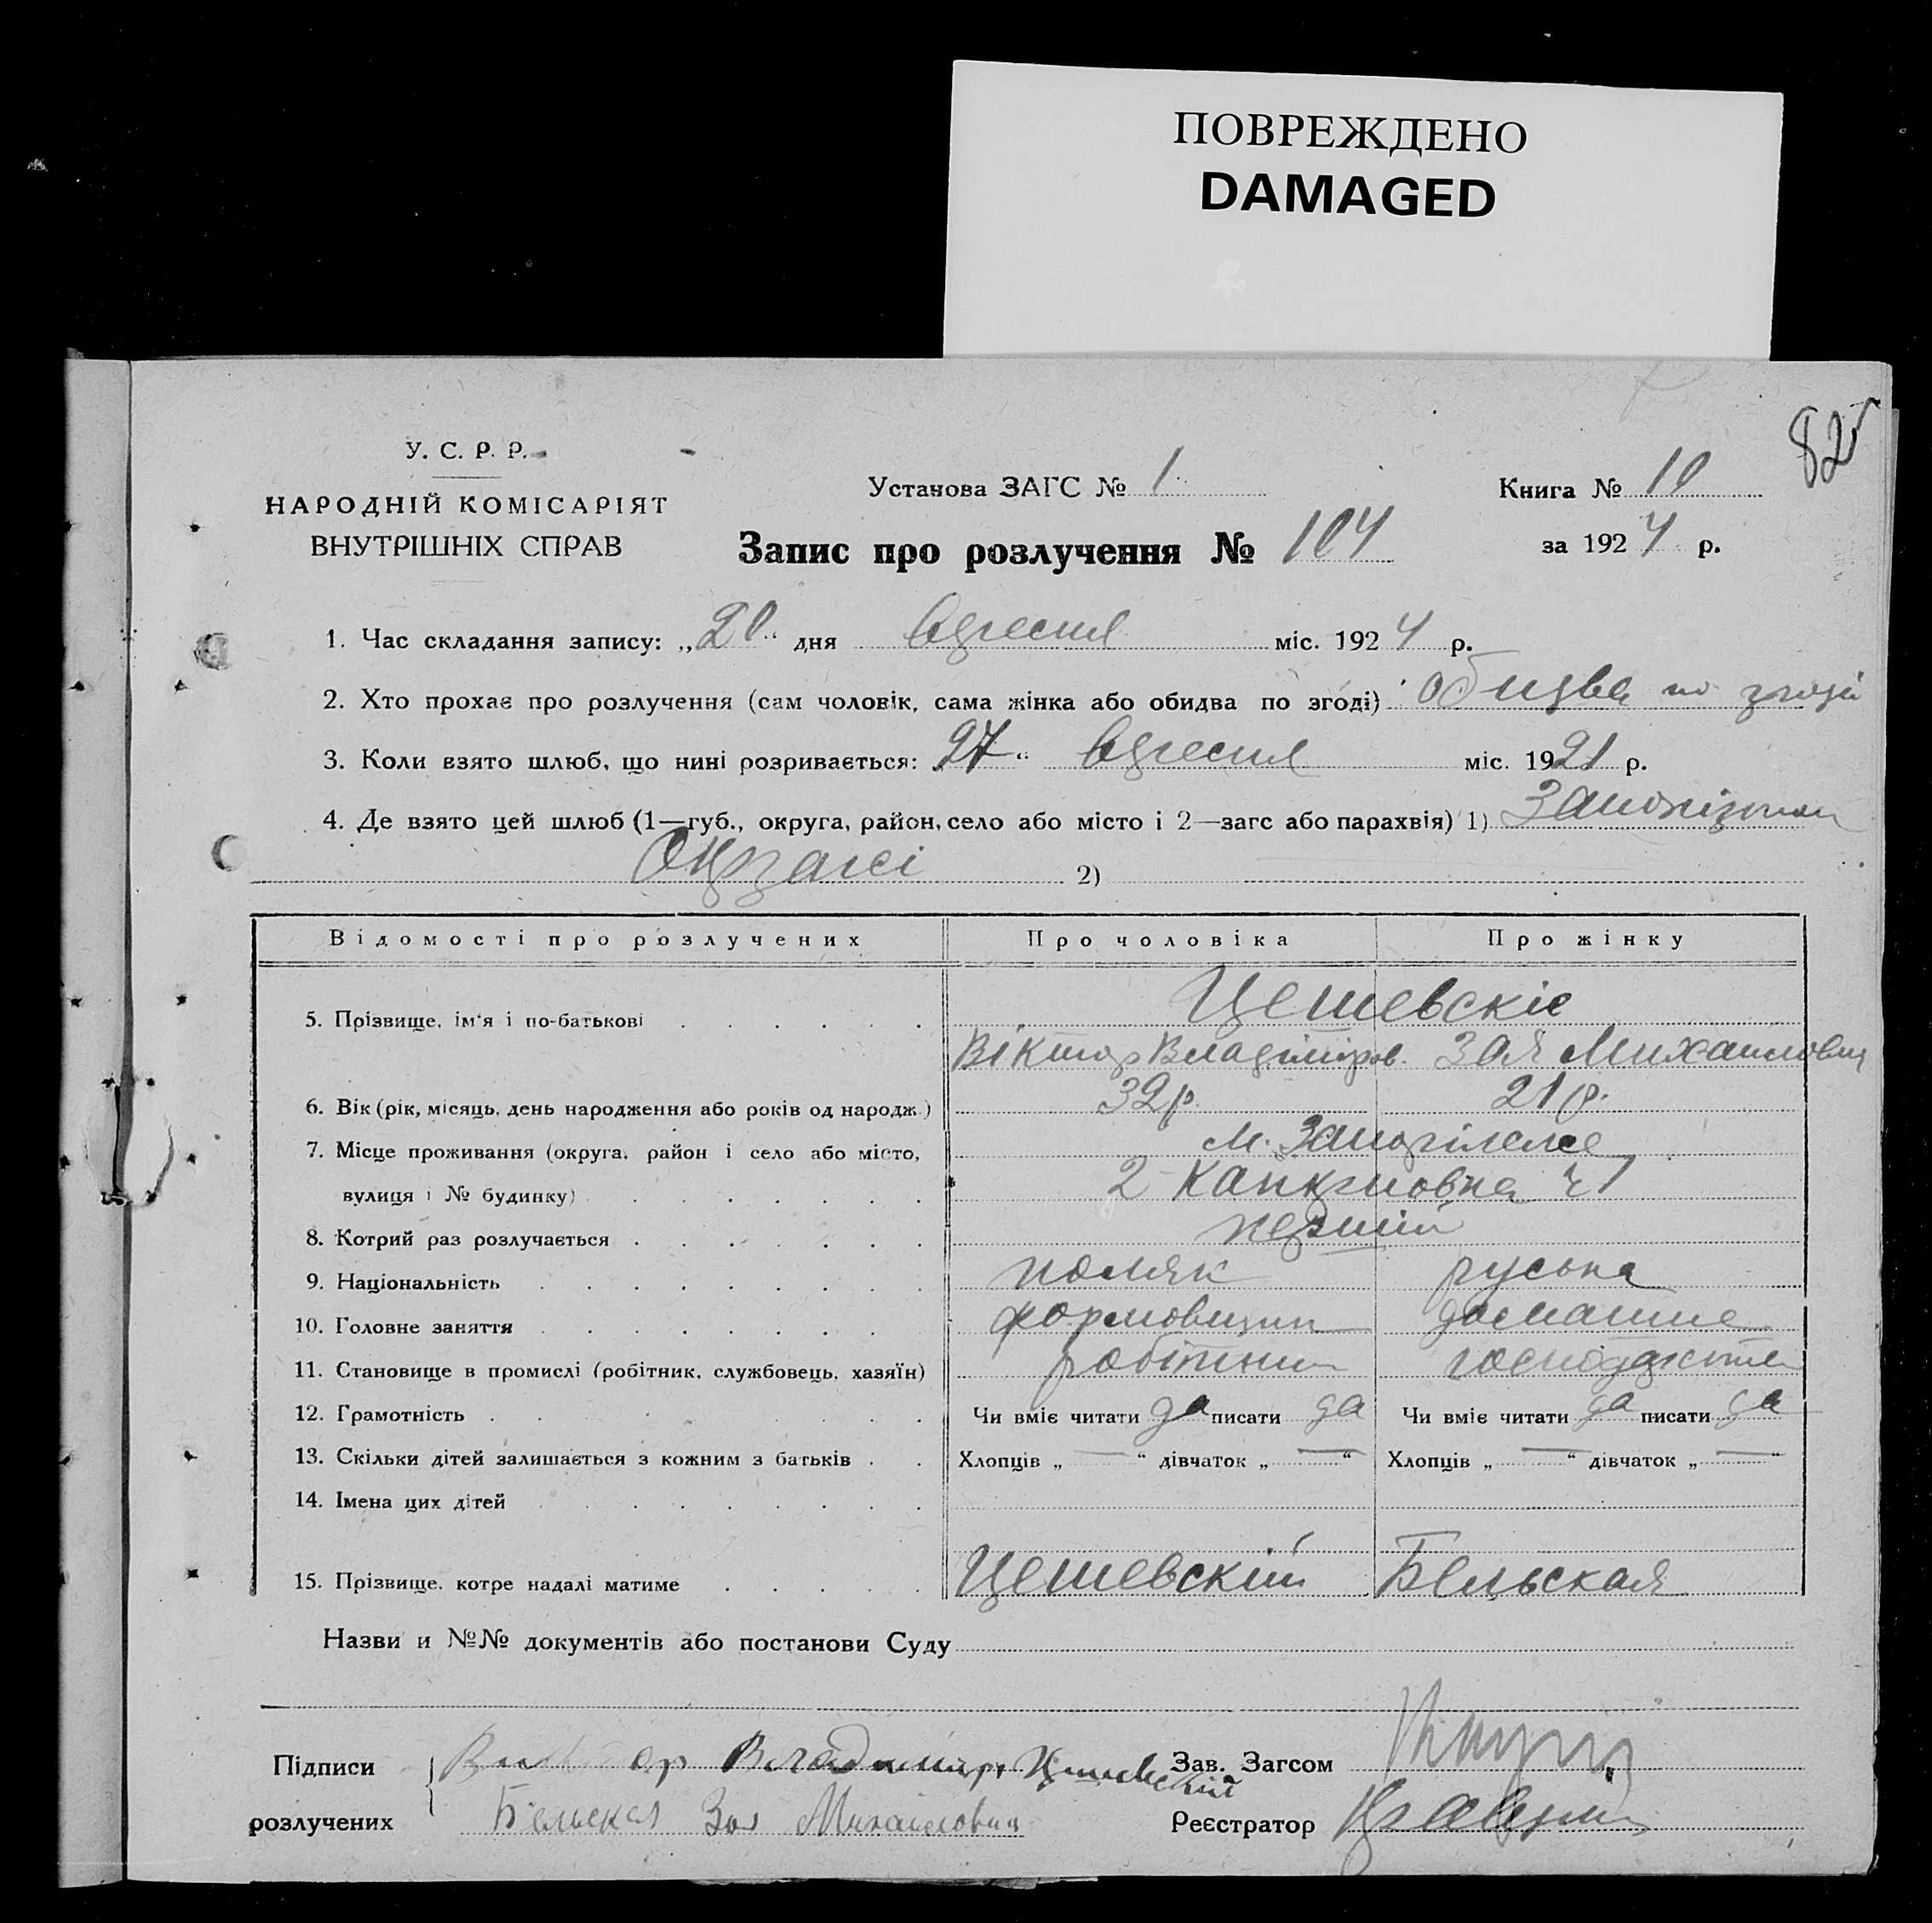 ПОВРЕЖДЕНО
DAMAGED
82
У. С. Р. Р.
НАРОДНІЙ КОМІСАРІЯТ
ВНУТРІШНІХ СПРАВ
Установа ЗАГС № 1
Книга № 10
Запис про розлучення № 104
за 1924 р.
1. Час складання запису: „20“ дня вересня міс. 1924 р.
2. Хто прохає про розлучення (сам чоловік, сама жінка або обидва по згоді) обидва по згоді
3. Коли взято шлюб, що нині розривається: „27“ вересня міс. 1921 р.
4. Де взято цей шлюб (1—губ., округа, район, село або місто і 2—загс або парахвія) 1)
2)
Відомості про розлучених Про чоловіка Про жінку
5. Прізвище, ім'я і по-батькові Цешевскіе
Віктор Владіміров. Зоя Михаиловна
6. Вік (рік, місяць, день народження або років од народж.) 32 р. 21 р.
7. Місце проживання (округа, район і село або місто, м.
вулиця і № будинку) 2 1
8. Котрий раз розлучається перший
9. Національність поляк руська
10. Головне заняття формовщик домашнє
11. Становище в промислі (робітник, службовець, хазяїн) робітник
12. Грамотність Чи вміє читати да писати да Чи вміє читати да писати да
13. Скільки дітей залишається з кожним з батьків Хлопців „—“ дівчаток „—“ Хлопців „—“ дівчаток „—“
14. Імена цих дітей
15. Прізвище, котре надалі матиме Цешевскій Бельская
Назви и №№ документів або постанови Суду
Підписи Виктор Владимир. Цешевский Зав. Загсом
розлучених Бельская Зоя Михаиловна Реєстратор